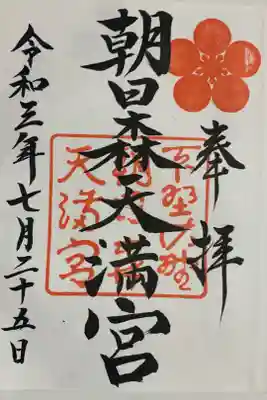 奉拝
朝日森天満宮
令和三年七月二十五日
下野佐野
朝日森
天満宮